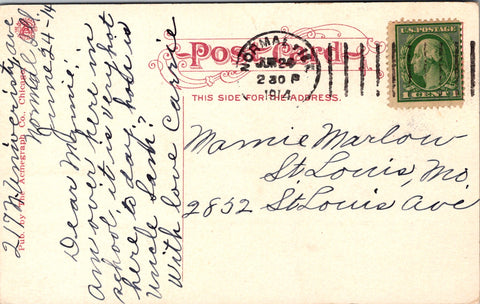 Post Card
THIS SIDE FOR THE ADDRESS.
NORMAL, ILL.
JUN 24
2 30 P
1914
U.S. POSTAGE
1 CENT 1
Mamie Marlow
St. Louis, Mo
2852 St. Louis Ave
217 N. University ave
Normal Ill
June 24-14
Dear Mamie:
Am over here in
school, it is very hot
here to day, how is
Uncle Sam?
With love Carrie
Pub. by The Acmegraph Co., Chicago